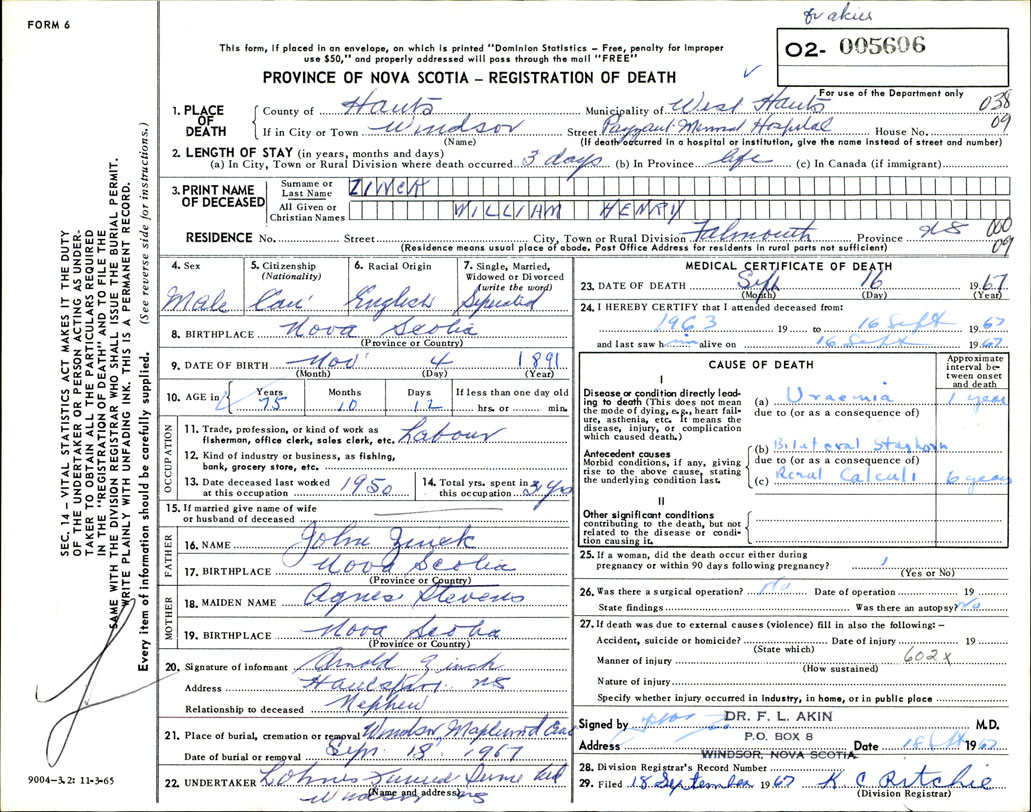 FORM 6
Dr akin
This form, if placed in an envelope, on which is printed "Dominion Statistics – Free, penalty for improper
use $50," and properly addressed will pass through the mail "FREE"
O2- 005606
PROVINCE OF NOVA SCOTIA – REGISTRATION OF DEATH
For use of the Department only
1. PLACE OF DEATH
County of Hants Municipality of West Hants 038
If in City or Town Windsor Street Payzant Memorial Hospital House No. 09
(Name) (If death occurred in a hospital or institution, give the name instead of street and number)
2. LENGTH OF STAY (in years, months and days)
(a) In City, Town or Rural Division where death occurred 3 days (b) In Province life (c) In Canada (if immigrant)
3. PRINT NAME OF DECEASED
Surname or Last Name ZINCK
All Given or Christian Names WILLIAM HENRY
RESIDENCE No. Street City, Town or Rural Division Falmouth Province NS 000
(Residence means usual place of abode. Post Office Address for residents in rural parts not sufficient) 09
4. Sex Male
5. Citizenship (Nationality) Can'
6. Racial Origin English
7. Single, Married, Widowed or Divorced (write the word) Seperated
8. BIRTHPLACE Nova Scotia
(Province or Country)
9. DATE OF BIRTH Nov' 4 1891
(Month) (Day) (Year)
10. AGE in Years 75 Months 10 Days 12 If less than one day old hrs. or min.
OCCUPATION
11. Trade, profession, or kind of work as fisherman, office clerk, sales clerk, etc. Labour
12. Kind of industry or business, as fishing, bank, grocery store, etc.
13. Date deceased last worked at this occupation 1950
14. Total yrs. spent in this occupation 3 yrs
15. If married give name of wife or husband of deceased
FATHER
16. NAME John Zinck
17. BIRTHPLACE Nova Scotia
(Province or Country)
MOTHER
18. MAIDEN NAME Agnes Stevens
19. BIRTHPLACE Nova Scotia
(Province or Country)
20. Signature of informant Arnold Zinck
Address Hantsport NS
Relationship to deceased Nephew
21. Place of burial, cremation or removal Windsor, Maplewood
Date of burial or removal Sept. 18, 1967
22. UNDERTAKER Funeral Ltd
(Name and address) Windsor NS
MEDICAL CERTIFICATE OF DEATH
23. DATE OF DEATH Sept 16 1967
(Month) (Day) (Year)
24. I HEREBY CERTIFY that I attended deceased from:
1963 19 to 16 Sept 1967
and last saw him alive on 16 Sept 1967
CAUSE OF DEATH
Approximate interval between onset and death
I
Disease or condition directly leading to death (This does not mean the mode of dying, e.g., heart failure, asthenia, etc. It means the disease, injury, or complication which caused death.)
(a) Uraemia 1 year
due to (or as a consequence of)
Antecedent causes
Morbid conditions, if any, giving rise to the above cause, stating the underlying condition last.
(b) Bilateral Staghorn
due to (or as a consequence of)
(c) Renal Calculi 6 years
II
Other significant conditions
contributing to the death, but not related to the disease or condition causing it.
25. If a woman, did the death occur either during pregnancy or within 90 days following pregnancy?
(Yes or No)
26. Was there a surgical operation? No Date of operation 19
State findings Was there an autopsy? No
27. If death was due to external causes (violence) fill in also the following: –
Accident, suicide or homicide? Date of injury 19
(State which)
Manner of injury 602X
(How sustained)
Nature of injury
Specify whether injury occurred in industry, in home, or in public place
Signed by DR. F. L. AKIN M.D.
P.O. BOX 8
Address WINDSOR, NOVA SCOTIA Date 18 Sept 1967
28. Division Registrar's Record Number
29. Filed 18 September 1967 K C Ritchie
(Division Registrar)
SEC. 14 – VITAL STATISTICS ACT MAKES IT THE DUTY
OF THE UNDERTAKER OR PERSON ACTING AS UNDER-
TAKER TO OBTAIN ALL THE PARTICULARS REQUIRED
IN THE "REGISTRATION OF DEATH" AND TO FILE THE
SAME WITH THE DIVISION REGISTRAR WHO SHALL ISSUE THE BURIAL PERMIT.
WRITE PLAINLY WITH UNFADING INK. THIS IS A PERMANENT RECORD.
Every item of information should be carefully supplied. (See reverse side for instructions.)
9004-3.2: 11-3-65